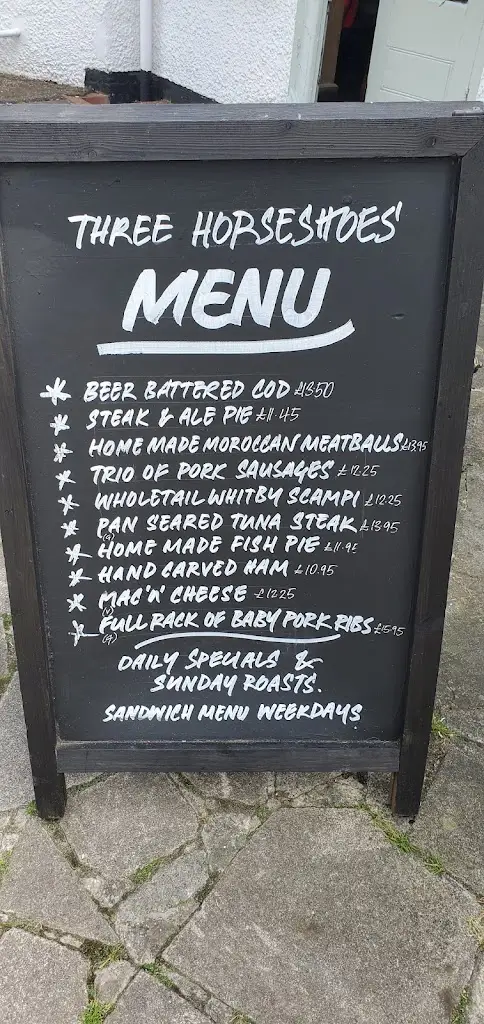 THREE HORSESHOES'
MENU
* BEER BATTERED COD £13.50
* STEAK & ALE PIE £11.45
* HOME MADE MOROCCAN MEATBALLS £13.95
* TRIO OF PORK SAUSAGES £12.25
* WHOLETAIL WHITBY SCAMPI £12.25
* PAN SEARED TUNA STEAK £13.95
(g)
* HOME MADE FISH PIE £11.95
* HAND CARVED HAM £10.95
* MAC 'N' CHEESE £12.25
(V)
* FULL RACK OF BABY PORK RIBS £15.95
(g)
DAILY SPECIALS &
SUNDAY ROASTS.
SANDWICH MENU WEEKDAYS